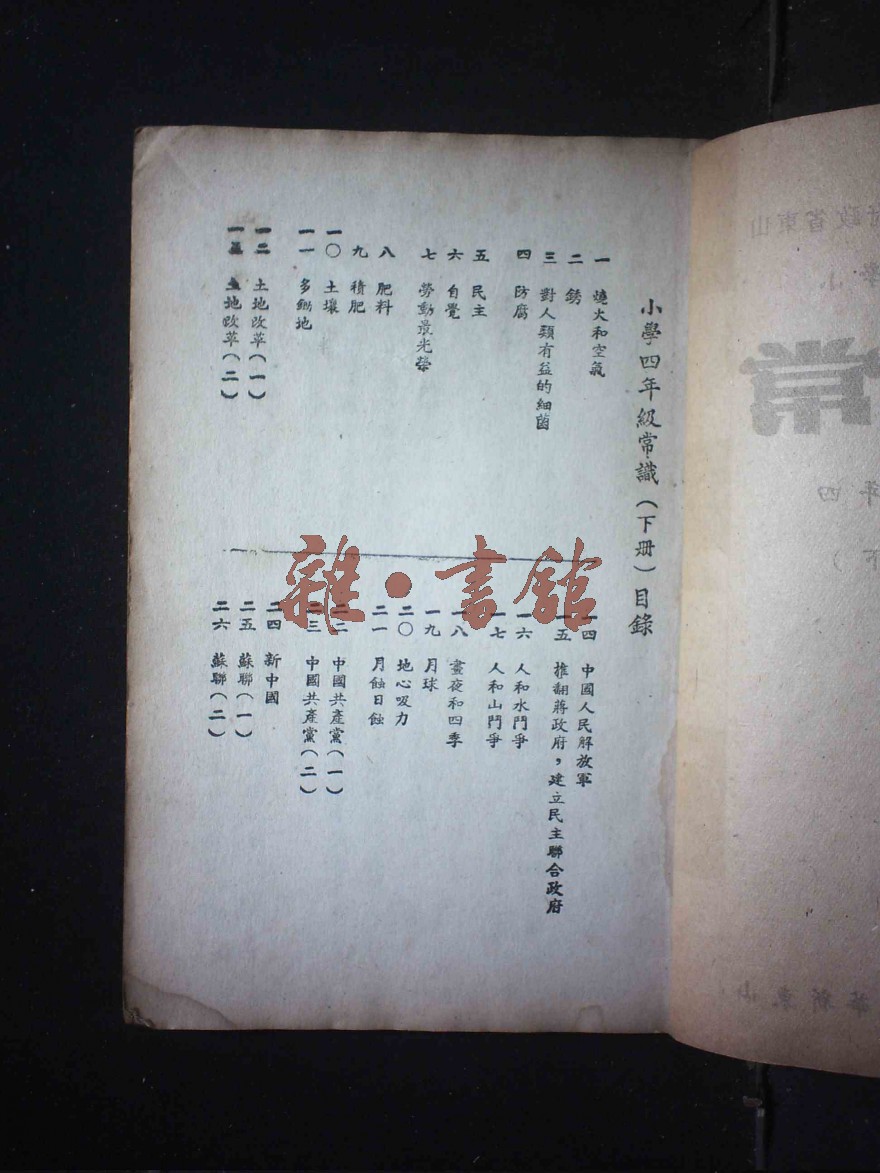 小學四年級常識（下册）目錄
一 燒火和空氣
二 銹
三 對人類有益的細菌
四 防腐
五 民主
六 自覺
七 勞動最光榮
八 肥料
九 積肥
一〇 土壤
一一 多鋤地
一二 土地改革（一）
一三 土地改革（二）
一四 中國人民解放軍
一五 推翻蔣政府，建立民主聯合政府
一六 人和水鬥爭
一七 人和山鬥爭
一八 晝夜和四季
一九 月球
二〇 地心吸力
二一 月蝕日蝕
二二 中國共產黨（一）
二三 中國共產黨（二）
二四 新中國
二五 蘇聯（一）
二六 蘇聯（二）
雜·書館
山東省政
常
年四
下）
山東新華